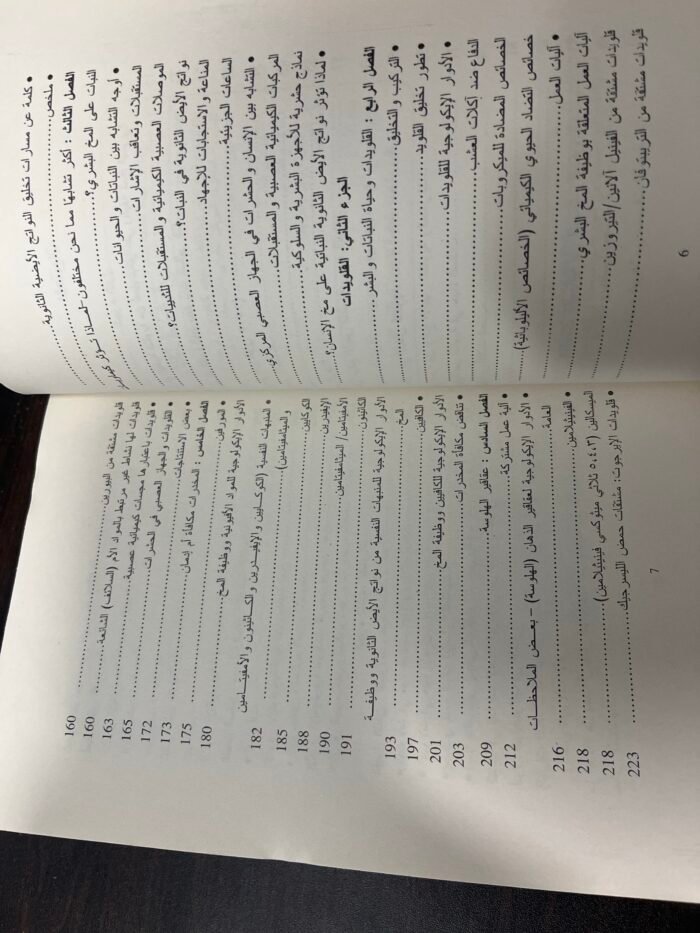 • كلمة عن مسارات تخليق النواتج الأيضية الثانوية
• ملخص
الفصل الثالث : أكثر تشابهًا مما نحن مختلفون - لماذا تؤثر
النبات على المخ البشري؟
• أوجه التشابه بين النباتات والحيوانات
المستقبلات وتعاقب الإشارات
الموصلات العصبية الكيميائية والمستقبلات للنبيتات؟
نواتج الأيض الثانوية في النبات؟
المناعة والاستجابات للإجهاد
الساعات الجزيئية
• التشابه بين الإنسان والحشرات في الجهاز العصبي المركزي
المركبات الكيميائية العصبية والمستقبلات
نماذج حشرية للأجهزة البشرية والسلوكية
• لماذا تؤثر نواتج الأيض الثانوية النباتية على مخ الإنسان؟
الجزء الثاني: القلويدات
الفصل الرابع : القلويدات وحياة النباتات والبشر
• التركيب والتخليق
• تطور تخليق القلويد
• الأدوار الإيكولوجية للقلويدات
الدفاع ضد آكلات العشب
الخصائص المضادة للميكروبات
خصائص التضاد الحيوي الكيميائي (الخصائص الأليلوباثية)
• آليات العمل
آليات العمل المتعلقة بوظيفة المخ البشري
قلويدات مشتقة من الفينيل آلانين/التيروزين
قلويدات مشتقة من التريبتوفان
6
قلويدات مشتقة من البيورين 160
قلويدات لها نشاط غير مرتبط بالمواد الأم (السلائف) الشائعة 160
• قلويدات باعتبارها مجسات كيميائية عصبية 163
• القلويدات والجهاز العصبي في الحشرات 165
• بعض الاستنتاجات 172
الفصل الخامس : المخدرات مكافأة أم إدمان 173
• المورفين 175
الأدوار الإيكولوجية للمواد الأفيونية ووظيفة المخ 180
• المنبهات النفسية (الكوكايين والإيفيدرين والكاثينون والأمفيتامين
والميثامفيتامين) 182
الكوكايين 185
الإيفيدرين 188
الأمفيتامين/ الميثامفيتامين 190
الكاثينون 191
الأدوار الإيكولوجية للمنبهات النفسية من نواتج الأيض الثانوية ووظيفة
المخ 193
• الكافيين 197
الأدوار الإيكولوجية للكافيين ووظيفة المخ 201
• تناقض مكافأة المخدرات 203
الفصل السادس : عقاقير الهلوسة 209
• آلية عمل مشتركة 212
• الأدوار الإيكولوجية لعقاقير الذهان (الهلوسة) – بعض الملاحظات
العامة 216
• الفينيثيلامين 218
الميسكالين (٥,٤,٣ ثلاثي ميثوكسي فينيثيلامين) 218
• قلويدات الإيرجوت: مشتقات حمض الليسرجيك 223
7